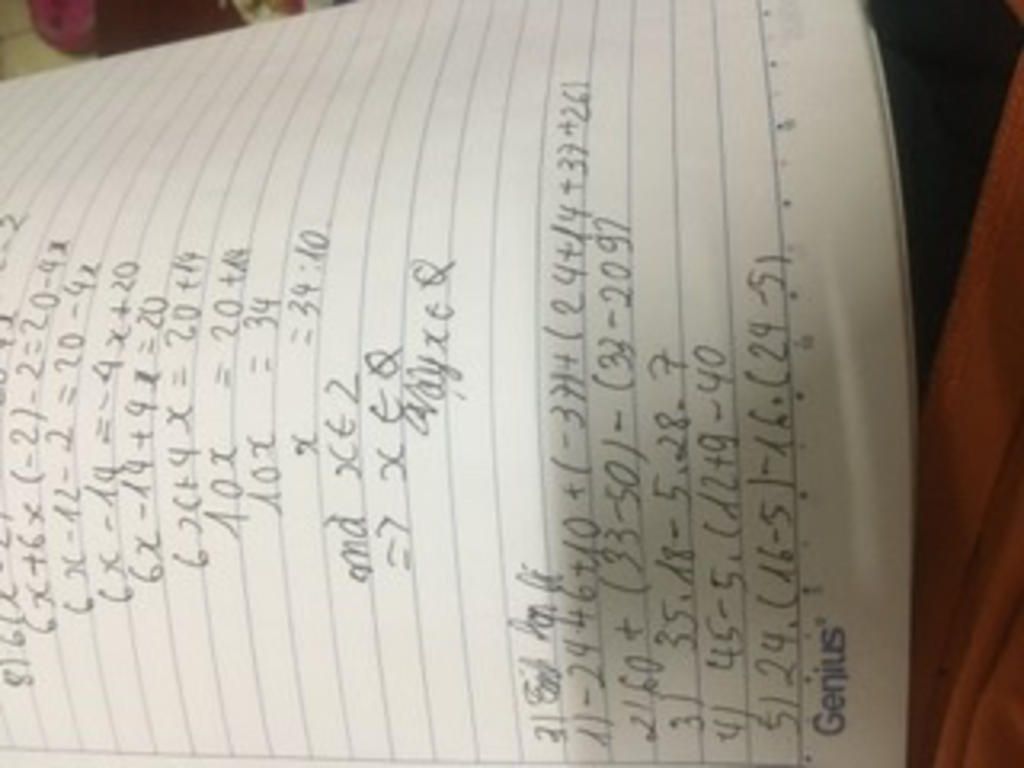 8) 6(x-2)
6x+6x(-2)-2=20-4x
6x-12-2=20-4x
6x-14=-4x+20
6x-14+4x=20
6x+4x=20+14
10x=20+14
10x=34
x=34:10
mà x∈Z
=> x∈Q
Vậy x∈Q
1)-244+6+10+(-37)+(24+14+37+26)
2)60+(33-50)-(33-209)
3) 35.18-5.28-7
4) 45-5.(12+9-40
5)24.(16-5)-16.(24-5)
Genius